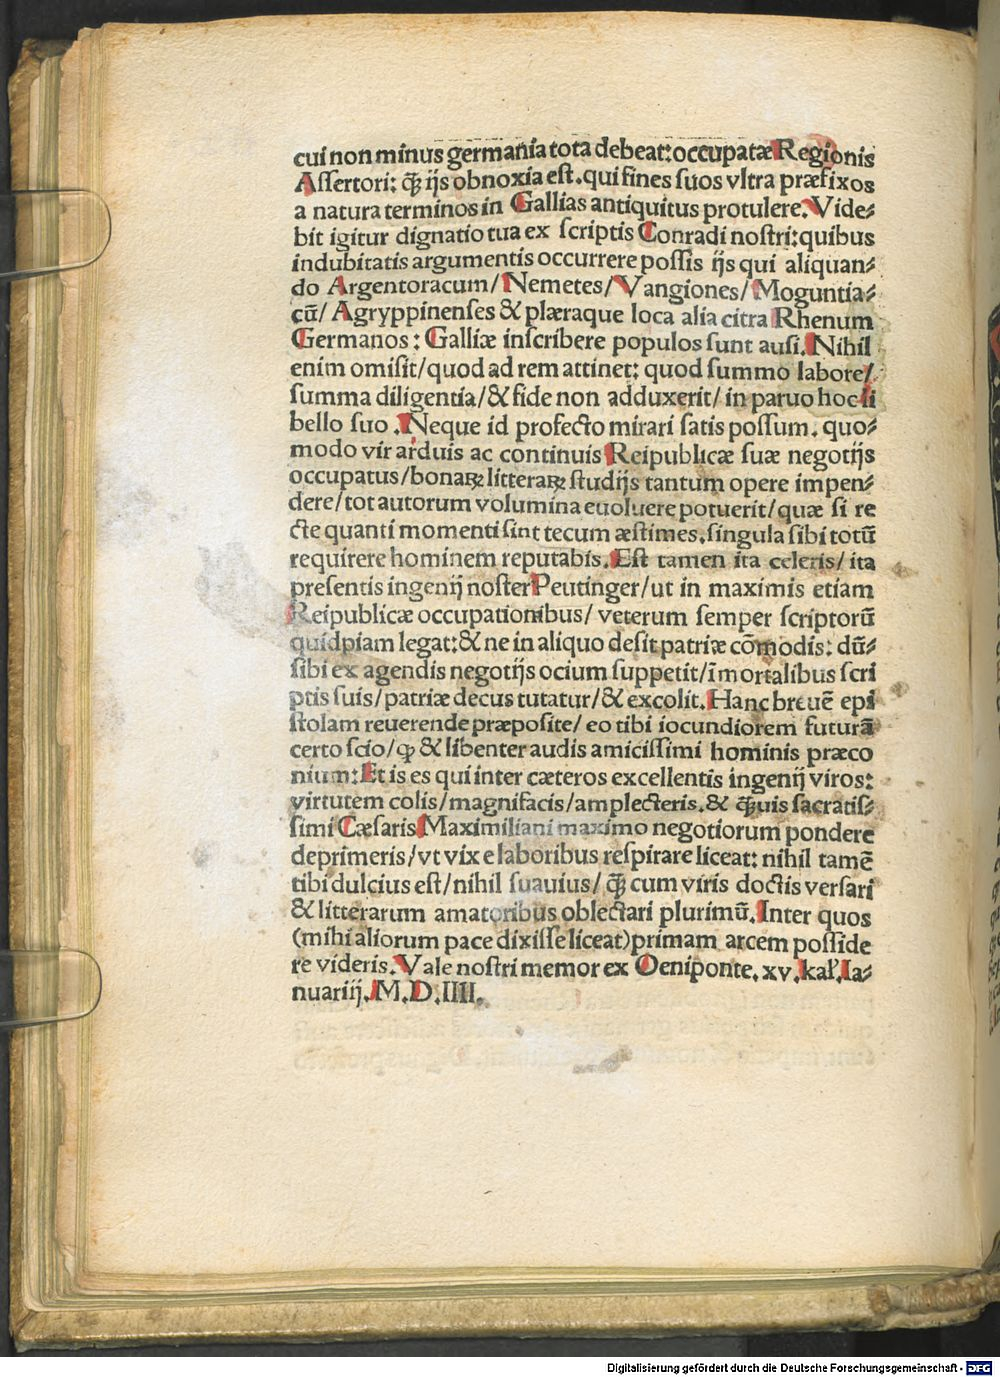 cui non minus germania tota debeat: occupatæ Regionis
Assertori: q̃ ijs obnoxia est. qui fines suos vltra præfixos
a natura terminos in Gallias antiquitus protulere. Vide⸗
bit igitur dignatio tua ex scriptis Conradi nostri: quibus
indubitatis argumentis occurrere possis ijs qui aliquan⸗
do Argentoracum/ Nemetes/ Vangiones/ Moguntia⸗
cū/ Agryppinenses & plæraque loca alia citra Rhenum
Germanos: Galliæ inscribere populos sunt ausi. Nihil
enim omisit/ quod ad rem attinet: quod summo labore/
summa diligentia/ & fide non adduxerit/ in paruo hoc li
bello suo. Neque id profecto mirari satis possum. quo⸗
modo vir arduis ac continuis Reipublicæ suæ negotijs
occupatus/ bonaꝝ litteraꝝ studijs tantum opere impen⸗
dere/ tot autorum volumina euoluere potuerit/ quæ si re
cte quanti momenti sint tecum æstimes. singula sibi totū
requirere hominem reputabis. Est tamen ita celeris/ ita
presentis ingenij noster Peutinger/ ut in maximis etiam
Reipublicæ occupationibus/ veterum semper scriptorū
quidpiam legat: & ne in aliquo desit patriæ cōmodis: dū⸗
sibi ex agendis negotijs ocium suppetit/ īmortalibus scri
ptis suis/ patriæ decus tutatur/ & excolit. Hanc breuē epi
stolam reuerende præposite/ eo tibi iocundiorem futurā
certo scio/ ꝙ & libenter audis amicissimi hominis præco
nium: Et is es qui inter cæteros excellentis ingenij viros:
virtutem colis/ magnifacis/ amplecteris. & q̃uis sacratis⸗
simi Cæsaris Maximiliani maximo negotiorum pondere
deprimeris/ vt vix e laboribus respirare liceat: nihil tamē
tibi dulcius est/ nihil suauius/ q̃ cum viris doctis versari
& litterarum amatoribus oblectari plurimū. Inter quos
(mihi aliorum pace dixisse liceat) primam arcem posside
re videris. Vale nostri memor ex Oeniponte. xv. kal'. Ia⸗
nuariij. M.D.IIII.
Digitalisierung gefördert durch die Deutsche Forschungsgemeinschaft - DFG